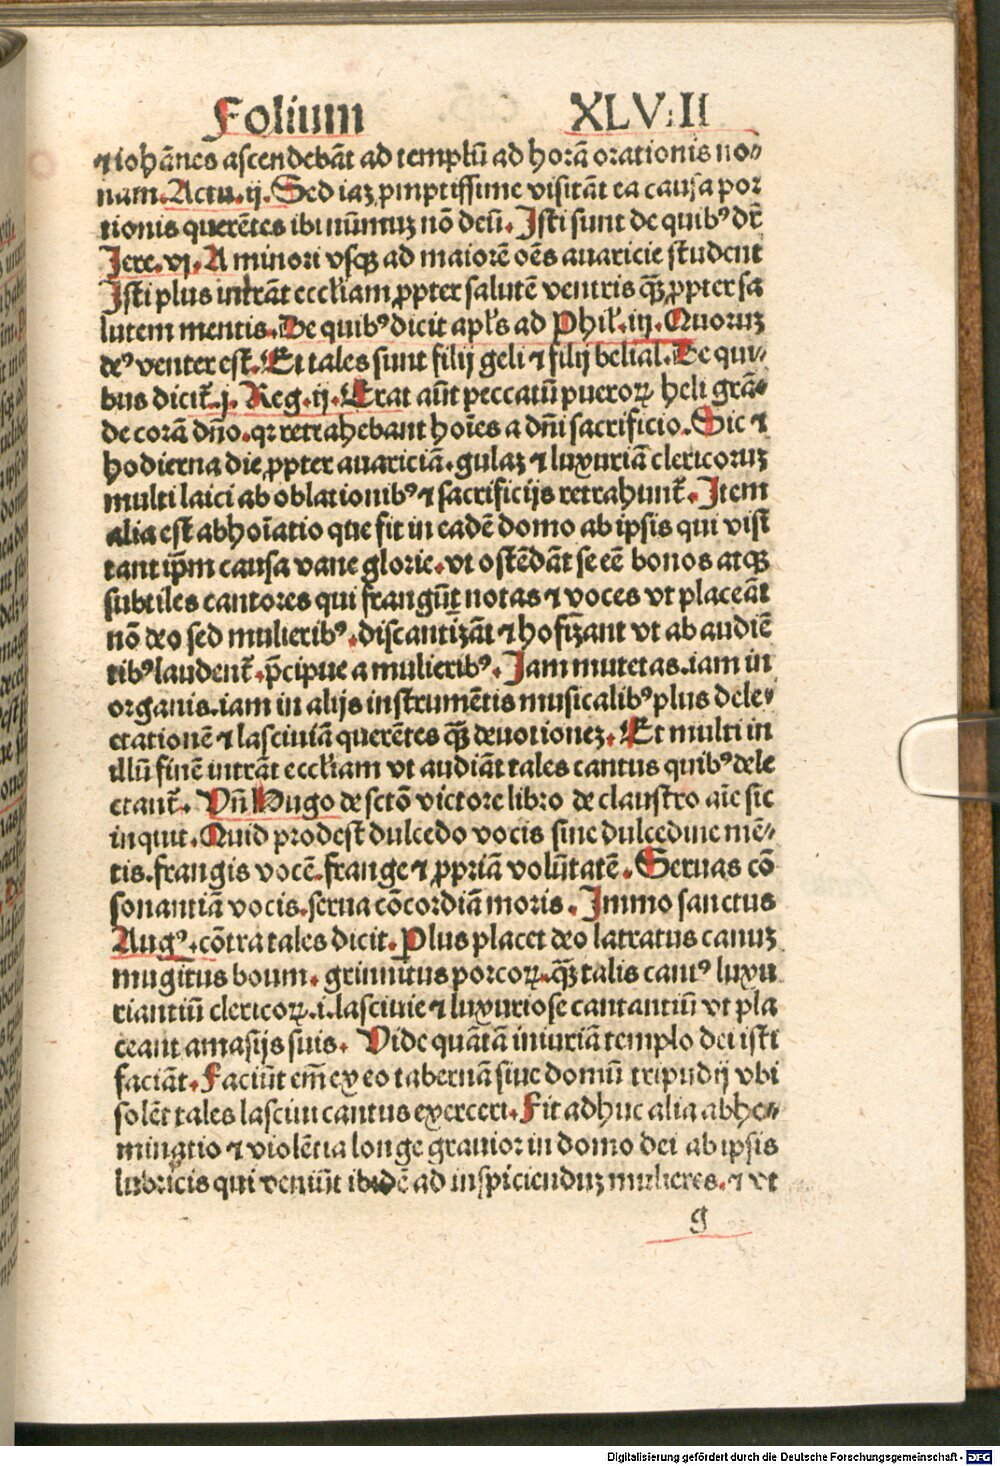 Folium XLVII
⁊ iohãnes ascendebãt ad templũ ad horã orationis no⸗
nam. Actu. ij. Sed iaʒ ꝓmptissime visitãt ea causa por
tionis querẽtes ibi nũmuʒ nõ deũ. Isti sunt de quibꝰ dr̃
Jere. vj. A minori vsqꝫ ad maiorẽ oẽs auaricie student
Isti plus intrãt eccl̃iam ꝓpter salutẽ ventris qꝫ̃ ꝓpter sa
lutem mentis. De quibꝰ dicit apl̃s ad Phil̃. iij. Quoruʒ
deꝰ venter est. Et tales sunt filij geli ⁊ filij belial. De qui⸗
bus dicit̃. j. Reg. ij. Erat aũt peccatũ pueroꝝ heli grã⸗
de corã dño. qꝛ retrahebant hoĩes a dñi sacrificio. Sic ⁊
hodierna die ꝓpter auariciã. gulaʒ ⁊ luxuriã clericoruʒ
multi laici ab oblationibꝰ ⁊ sacrificijs retrahunt̃. Item
alia est abhoĩatio que fit in eadẽ domo ab ipsis qui visi
tant ip̃m causa vane glorie. vt ostẽdãt se eẽ bonos atqꝫ
subtiles cantores qui frangũt notas ⁊ voces vt placeãt
nõ deo sed mulieribꝰ. discantizãt ⁊ hofizant vt ab audiẽ
tibꝰ laudent̃. p̃cipue a mulieribꝰ. Jam mutetas. iam in
organis. iam in alijs instrumẽtis musicalibꝰ plus dele⸗
ctationẽ ⁊ lasciuiã querẽtes qꝫ̃ deuotioneʒ. Et multi in
illũ finẽ intrãt eccl̃iam vt audiãt tales cantus quibꝰ dele
ctant̃. Vñ Hugo de sctõ victore libro de claustro aĩe sic
inquit. Quid prodest dulcedo vocis sine dulcedine mẽ⸗
tis. frangis vocẽ. frange ⁊ ꝓpriã volũtatẽ. Seruas cõ
sonantiã vocis. serua cõcordiã moris. Immo sanctus
Augꝰ. cõtra tales dicit. Plus placet deo latratus canuʒ
mugitus boum. grinnitus porcoꝝ. qꝫ̃ talis cantꝰ luxu
riantiũ clericoꝝ. i. lasciuie ⁊ luxuriose cantantiũ vt pla
ceant amasijs suis. Vide quãtã iniuriã templo dei isti
faciãt. Faciũt em̃ ex eo tabernã siue domũ tripudij vbi
solẽt tales lasciui cantus exerceri. Fit adhuc alia abho⸗
minatio ⁊ violẽtia longe grauior in domo dei ab ipsis
lubricis qui veniũt ibidẽ ad inspicienduʒ mulieres. ⁊ vt
g
Digitalisierung gefördert durch die Deutsche Forschungsgemeinschaft - DFG